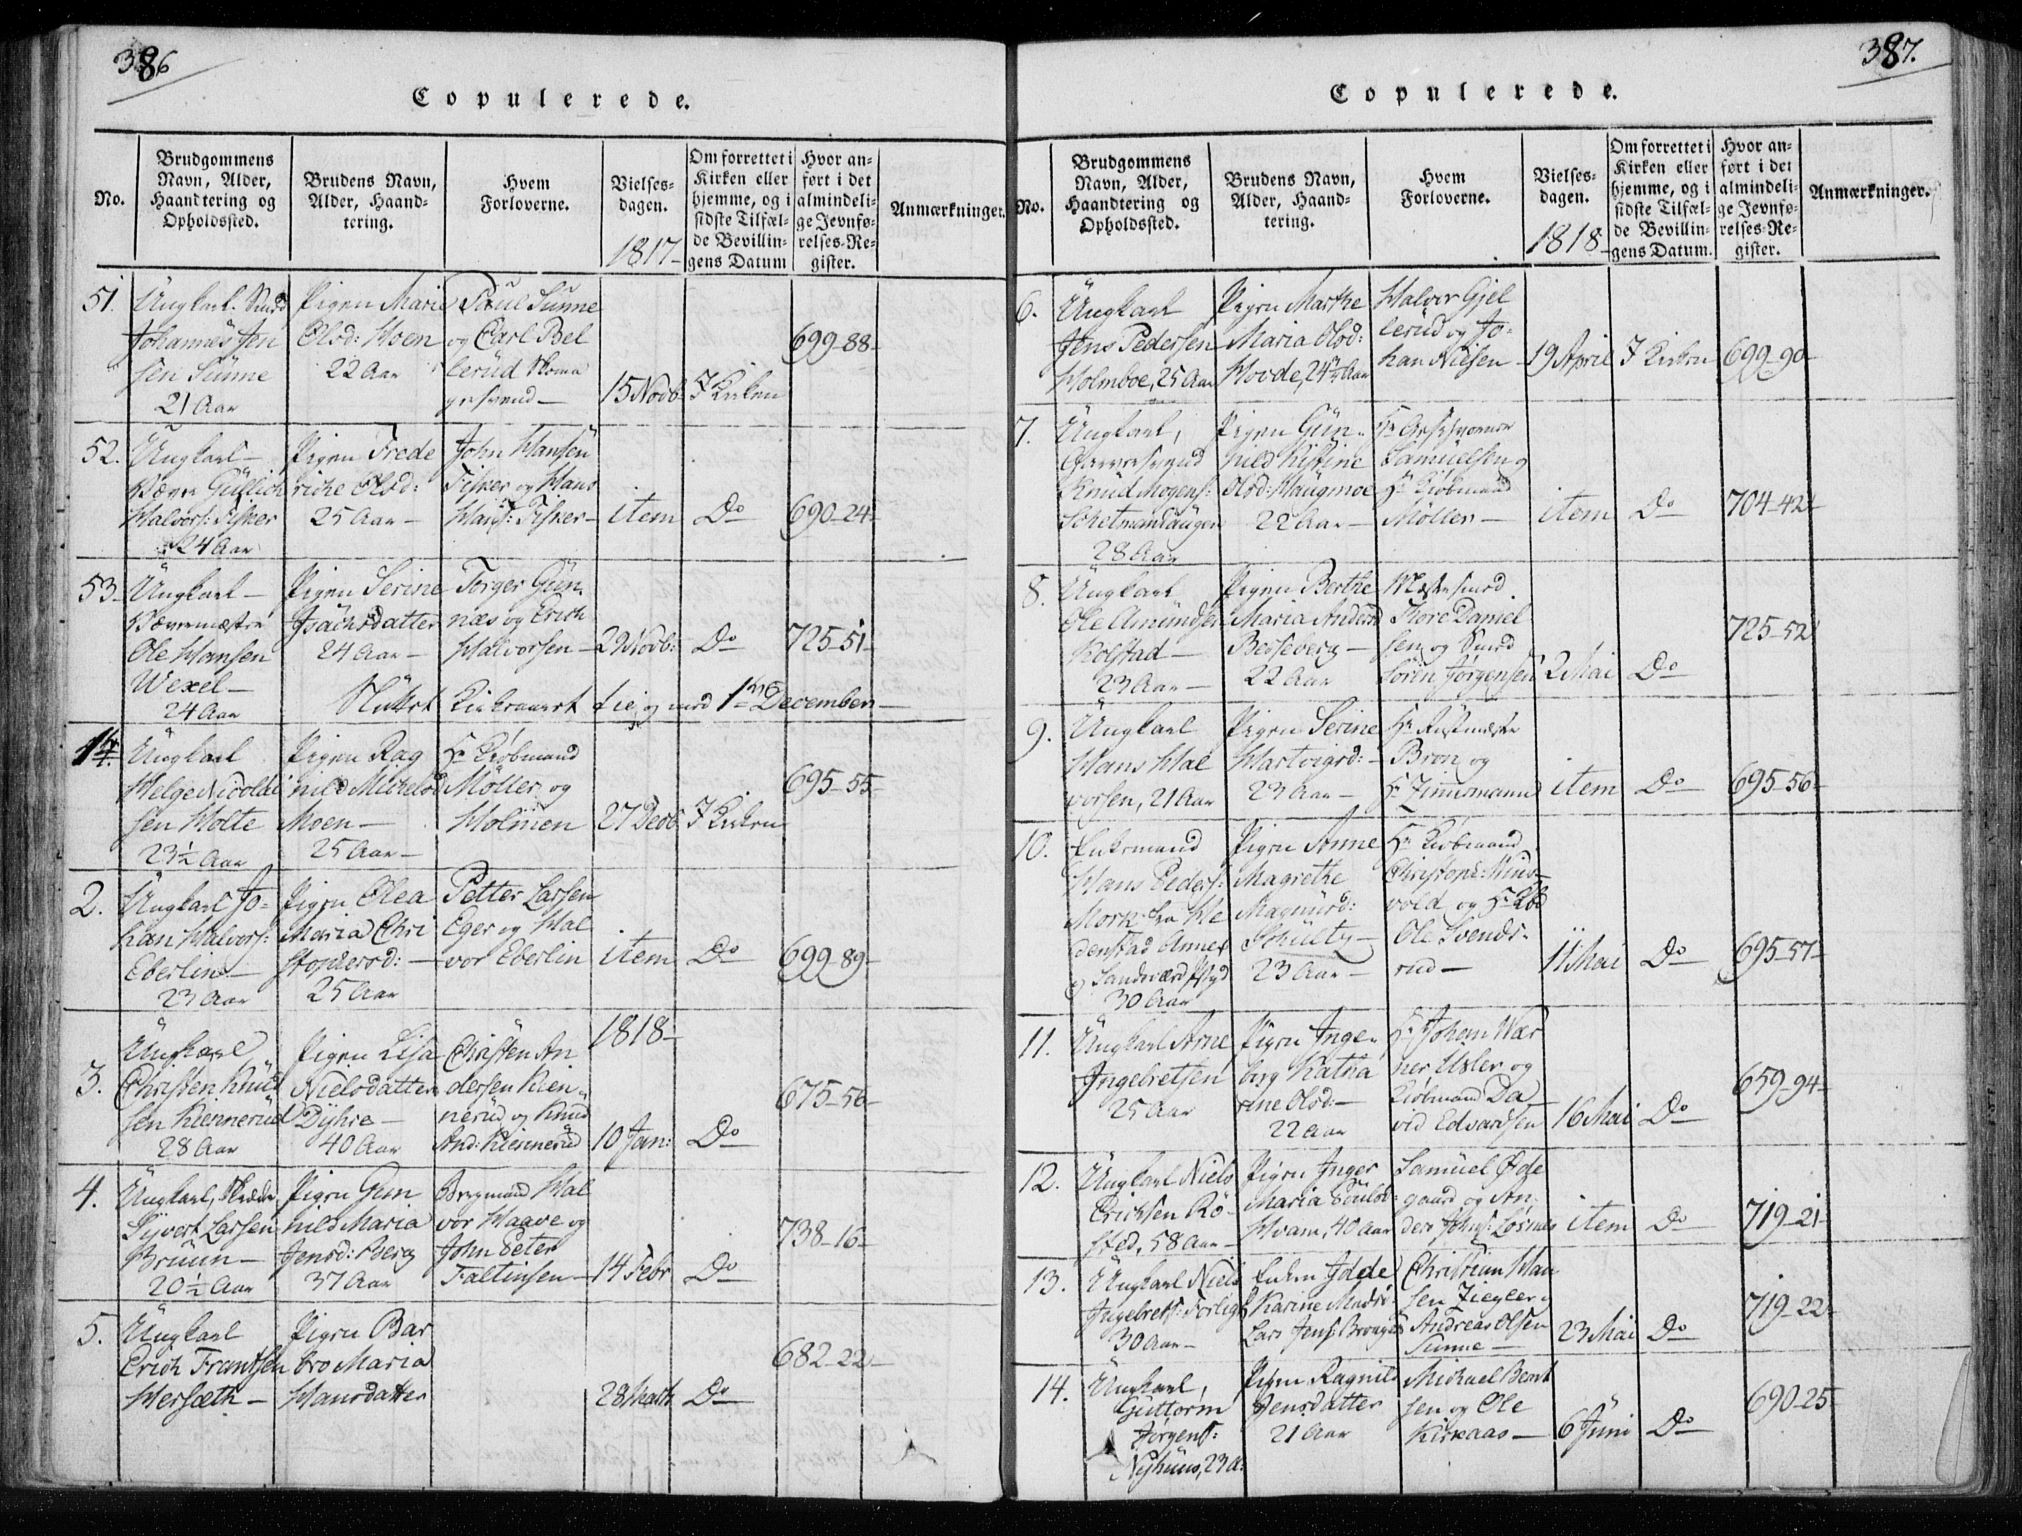 386
Copulerede.
No.
Brudgommens
Navn, Alder,
Haandtering og
Opholdssted.
Brudens Navn,
Alder, Haand-
tering.
Hvem
Forloverne.
Vielses-
dagen.
1817-
Om forrettet i
Kirken eller
hjemme, og i
sidste Tilfæl-
de Bevillin-
gens Datum
Hvor an-
ført i det
almindeli-
ge Jevnfø-
relses-Re-
gister.
Anmærkninger.
51.
Ungkarl Smed
Johannes Jen
sen Sunne
21 Aar
Pigen Marie
Olsd: Moen
22 Aar
Poul Sunne
og Carl Bel
lerud
15 Novb:
I Kirken
699-88-
52.
Ungkarl-
Gullich
Halvors: Fisker
24 Aar
Pigen Frede
riche Olsd:
25 Aar-
John Hansen
Fisker og Hans
Hans: Fisker-
item
Do
690-24-
53-
Ungkarl-
Ole Hansen
Wexel-
24 Aar
Pigen Serine
Isachsdatter
24 Aar-
Torger Gun
næs og Erich
Halvorsen-
29 Novb:
Do
725-51-
Sluttet Kirkeaaret og med December-
1.
Ungkarl
Helge Nicolai
sen Holte
23½ Aar
Pigen Rag
nild Michelsd
Moen-
25 Aar-
Hr Kiøbmand
Möller og
Holmen
27 Decb.
I Kirken
695-55-
2.
Ungkarl Jo-
han Halvors:
Eberlin-
23 Aar
Pigen Olea
Maria Chri
stophersd:-
25 Aar
Petter Larsen
Eger og Hal
vor Eberlin
item
Do
699-89-
1818-
3.
Ungkarl
Christen Knud
sen Kiennerud
28 Aar
Pigen Lisa
Nielsdatter
Dyhre-
40 Aar
Christen An
dersen Kien-
nerud og Knud
And: Kiennerud
10 Jan:
Do
675-56-
4.
Ungkarl,
Syvert Larsen
Bruun-
20½ Aar
Pigen Gun
nild Maria
Jensd: Berg
37 Aar
Bergmand Hal
vor Haave og
John Peter
Faltinsen-
14 Febr
Do
738-16-
5.
Ungkarl
Erich Frantsen
Hersæth-
Pigen Bar
bro Maria
Hansdatter
28 Marth
Do
682-22-
387.
Copulerede.
No.
Brudgommens
Navn, Alder,
Haandtering og
Opholdssted.
Brudens Navn,
Alder, Haand-
tering.
Hvem
Forloverne.
Vielses-
dagen.
1818-
Om forrettet i
Kirken eller
hjemme, og i
sidste Tilfæl-
de Bevillin-
gens Datum.
Hvor an-
ført i det
almindeli-
ge Jevnfø-
relses-Re-
gister.
Anmærkninger.
6.
Ungkarl
Jens Pedersen
Holmboe, 25 Aar
Pigen Marthe
Maria Olsd:
Hovde, 24½ Aar
Halvor Gjel
lerud og Jo-
han Nielsen-
19 April
I Kirken
699-90-
7.
Ungkarl,
Knud Mogens:
28 Aar
Pigen Gun-
nild Kistine
Olsd: Haugmoe
22 Aar-
Samuelsen og
Hr Kiøbmand
Möller-
item
Do
704-42-
8.
Ungkarl
Ole Amundsen
Kolstad-
23 Aar-
Pigen Berthe
Maria Andersd
Besseberg-
22 Aar
Mestersmed
Tore Daniel
sen og Smed
Sören Jørgensen
2 Mai
Do
725-52
9.
Ungkarl
Hans Hal
vorsen, 21 Aar
Pigen Serine
Hartvigsd:-
23 Aar-
Hr
Bron og
Hr Zimmermann
item
Do
695-56-
10.
Enkemand
Hans Peders:
Mork fra He
denstad Annex
og Sandsværd
30 Aar
Pigen Anne
Magrethe
Magnusd:
Schultz-
23 Aar-
Hr Kiøbmand
Christoph: Mins-
vold og Hr
Ole Svends-
rud-
11 Mai
Do
695-57-
11.
Ungkarl Arne
Ingebretsen
25 Aar
Pigen Inge-
borg Katha
rine Olsd:-
22 Aar
Hr Johan Wær
ner Usler og
Kiøbmand Da
vid Edvardsen
16 Mai
Do
659-94-
12.
Ungkarl Niels
Erichsen Rö-
sted, 58 Aar-
Pigen Inger
Maria Poulsd:
Hvam, 40 Aar
Samuel Øde
gaard og An-
ders Johs: Losnes
item
Do
719-21-
13.
Ungkarl Niels
Ingebrets: Forlig
30 Aar-
Enken Idde
Karine Madsd
Lars Jens:
Christian Han
sen Ziegler og
Andreas Olsen
Sunne-
23 Mai
Do
719-22-
14.
Ungkarl,
Guttorm
Jørgens:
Nyhuus, 23 A:
Pigen Ragnild
Jensdatter
21 Aar
Michael Bent
sen og Ole
Kirkaas-
6 Juni
Do
690-25-